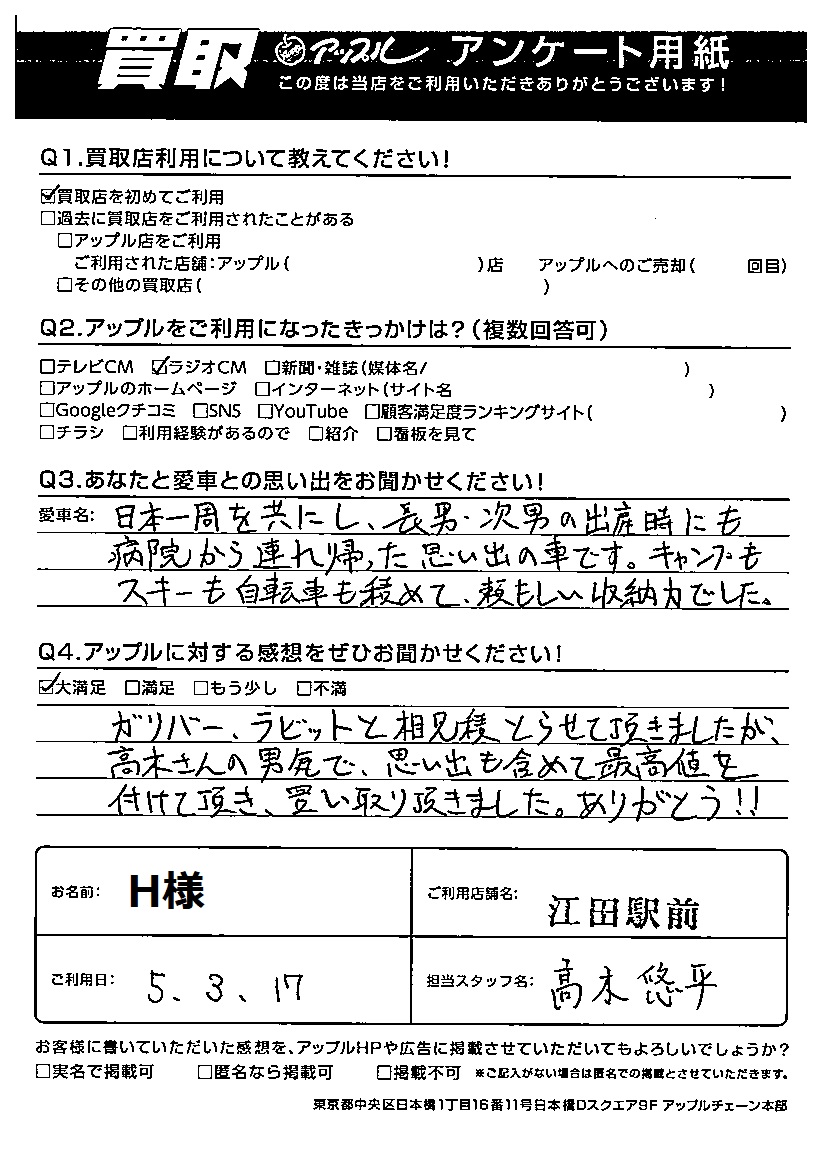 買取 アップル アンケート用紙
この度は当店をご利用いただきありがとうございます!
Q1.買取店利用について教えてください!
☑買取店を初めてご利用
□過去に買取店をご利用されたことがある
□アップル店をご利用
ご利用された店舗:アップル( )店 アップルへのご売却( 回目)
□その他の買取店( )
Q2.アップルをご利用になったきっかけは?(複数回答可)
□テレビCM ☑ラジオCM □新聞・雑誌(媒体名/ )
□アップルのホームページ □インターネット(サイト名 )
□Googleクチコミ □SNS □YouTube □顧客満足度ランキングサイト( )
□チラシ □利用経験があるので □紹介 □看板を見て
Q3.あなたと愛車との思い出をお聞かせください!
愛車名: 日本一周を共にし、長男・次男の出産時にも
病院から連れ帰った思い出の車です。キャンプも
スキーも自転車も積めて、頼もしい収納力でした。
Q4.アップルに対する感想をぜひお聞かせください!
☑大満足 □満足 □もう少し □不満
ガリバー、ラビットと相見積とらせて頂きましたが、
高木さんの男気で、思い出も含めて最高値を
付けて頂き、買い取り頂きました。ありがとう!!
お名前: H様 ご利用店舗名: 江田駅前
ご利用日: 5.3.17 担当スタッフ名: 高木悠平
お客様に書いていただいた感想を、アップルHPや広告に掲載させていただいてもよろしいでしょうか?
□実名で掲載可 □匿名なら掲載可 □掲載不可 ※ご記入がない場合は匿名での掲載とさせていただきます。
東京都中央区日本橋1丁目16番11号日本橋Dスクエア9F アップルチェーン本部